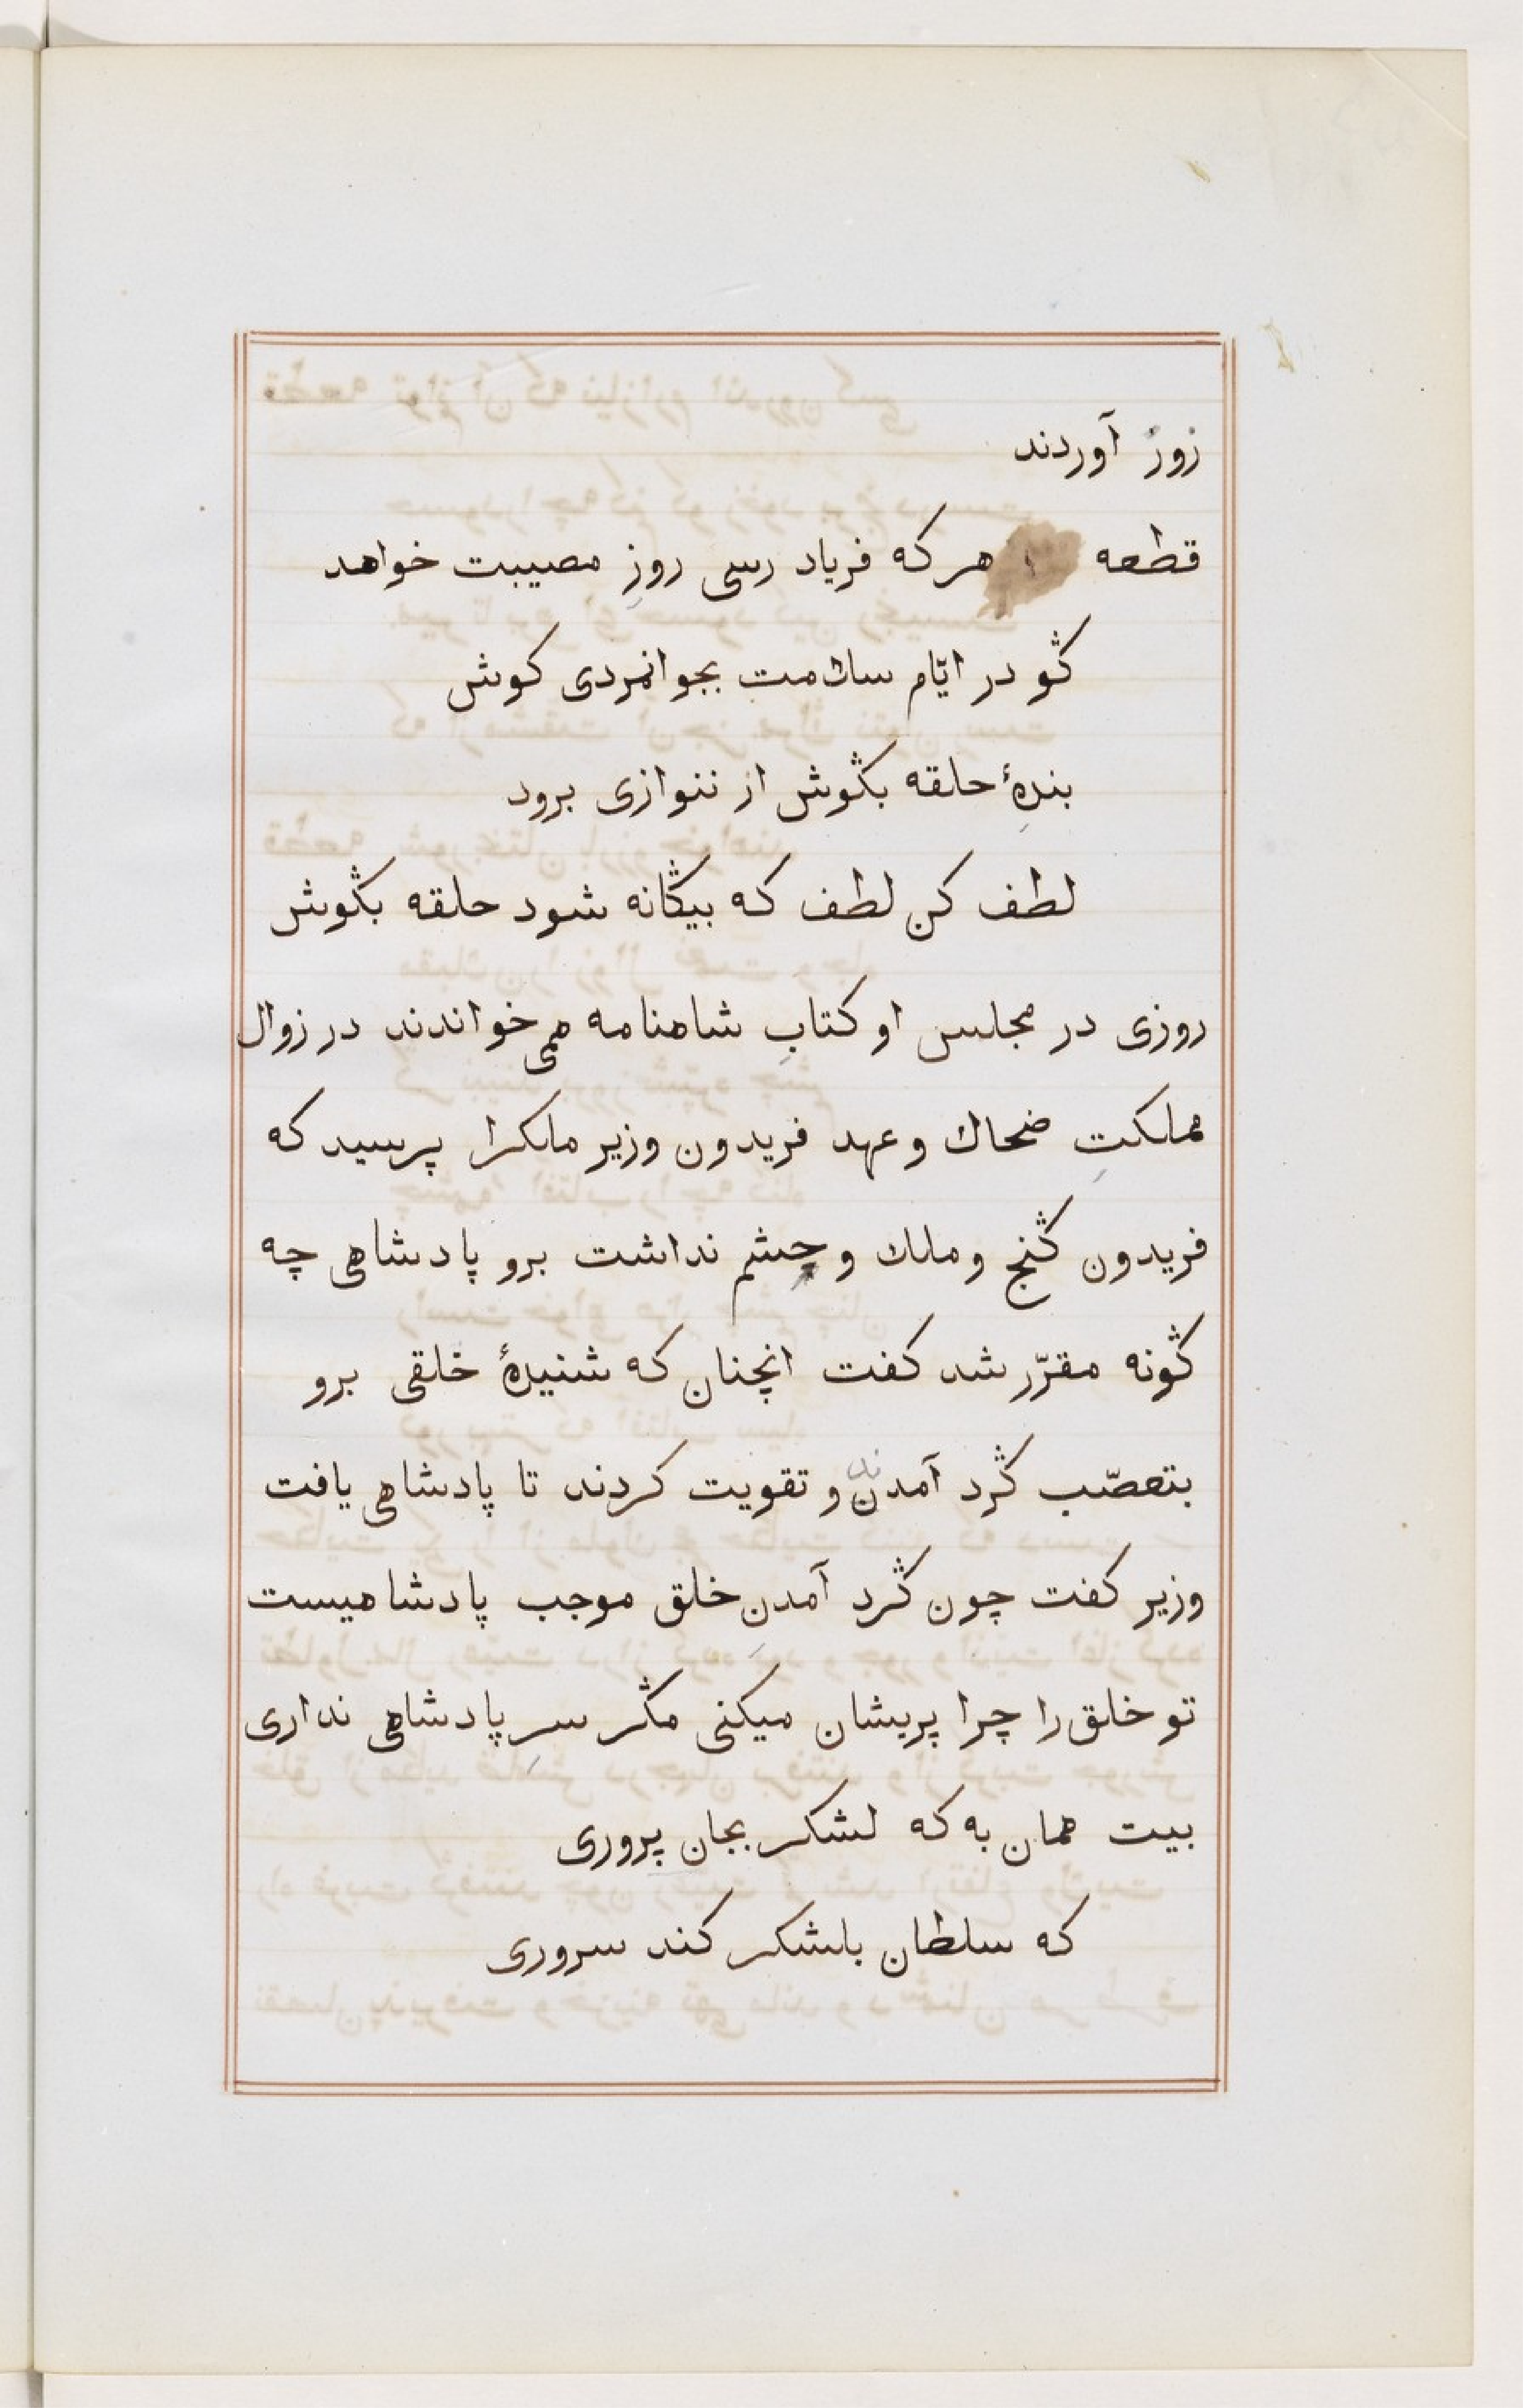 زوز آوردند
قطعه هر که فریاد رسی روزِ مصیبت خواهد
گو در ایّام سلامت بجوانمردی کوش
بندهٔ حلقه بگوش از ننوازی برود
لطف کن لطف که بیگانه شود حلقه بگوش
روزی در مجلس او کتابِ شاهنامه می خواندند در زوال
مملکتِ ضحاك و عهد فریدون وزیر ملکرا پرسید که
فریدون گنج و ملك و چشم نداشت برو پادشاهی چه
گونه مقرّر شد کفت انچنان که شنیدهٔ خلقی برو
بتعصّب گرد آمدن ند و تقویت کردند تا پادشاهی یافت
وزیر کفت چون گرد آمدنِ خلق موجب پادشاهیست
تو خلق را چرا پریشان میکنی مگر سرِ پادشاهی نداری
بیت همان به که لشکر بجان پروری
که سلطان بلشکر کند سروری